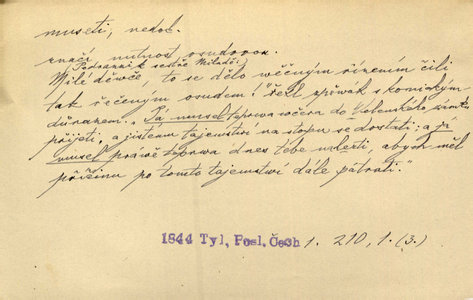 museti, nedok.
značí nutnost osudovou.
Podranník sestře Miladě:
Milé děvče, to se dělo věčným řízením čili
tak řečeným osudem! "řekl zpěvák s komickým
důrazem. "Já musel teprva včera do Velenského
přijeti, a jistému tajemství na stopu se dostati; a já
musel právě teprva dnes tebe nalezti, abych měl
příčinu po tomto tajemství dále pátrati."
1844 Tyl, Posl. Čech 1. 210, 1. (3.)